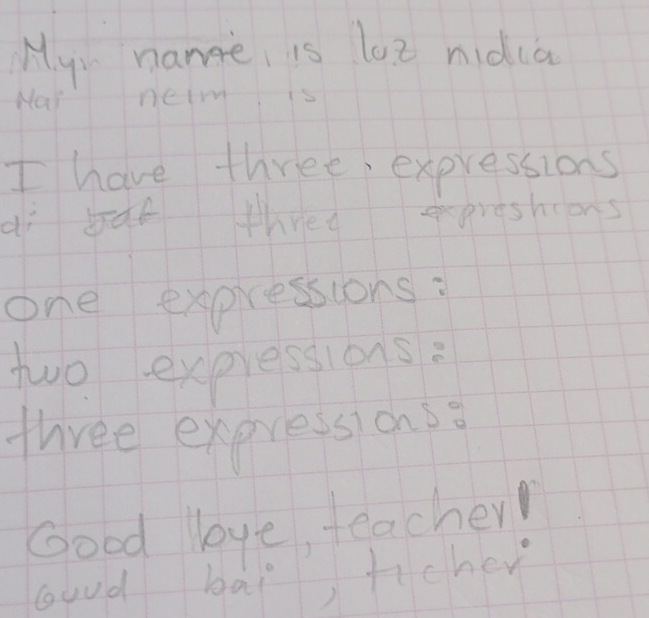 My name, is luz nidia
Mai neim. is
I have three, expressions
ai three expreshions
one expressions:
two expressions:
three expressions:
Good bye, teacher!
Guud bai, ticher